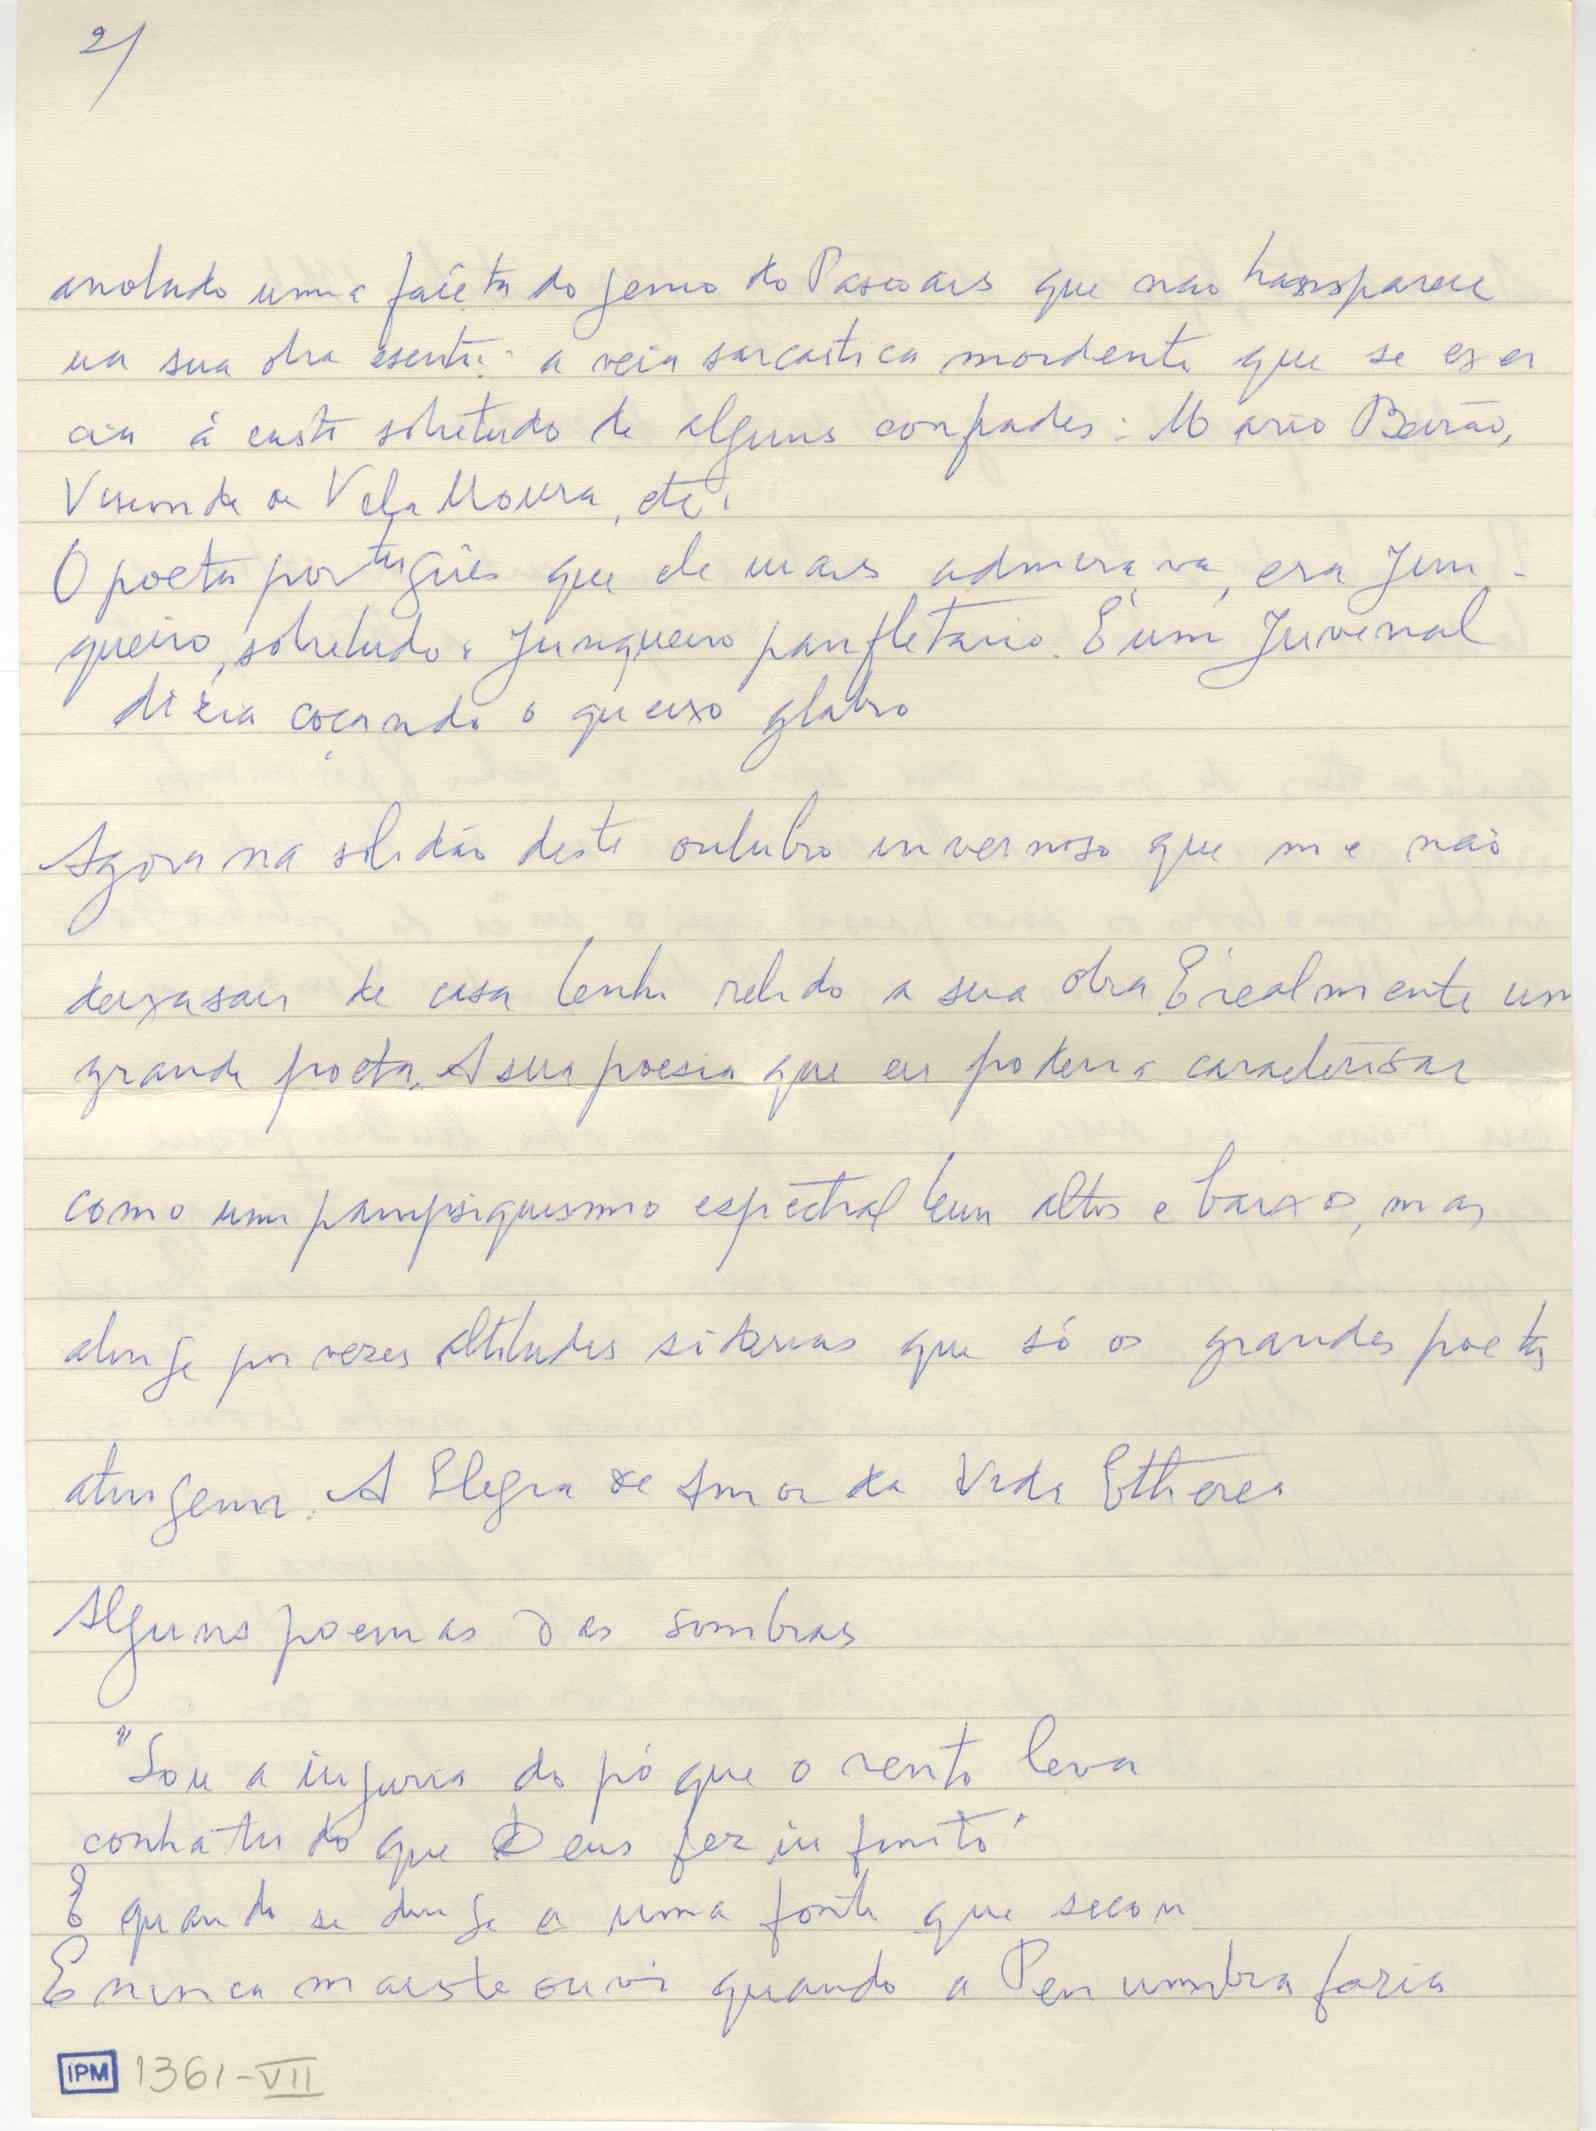 2/
anotado uma faceta do genio do Pascoais que não transparece
na sua obra escrita: a veia sarcastica mordente que se exer
cia á custa sobretudo de alguns confrades: Mario Beirão,
Visconde de Vila Moura, etc.
O poeta português que ele mais admirava, era Jun-
queiro, sobretudo o Junqueiro panfletario. É um Juvenal
dizia coçando o queixo glabro
Agora na solidão deste outubro invernoso que me não
deixa sair de casa tenho relido a sua obra. É realmente um
grande poeta. A sua poesia que eu poderia caracterisar
como um pampsiquismo espectral tem altos e baixos, mas
atinge por vezes altitudes siderais que só os grandes poetas
atingem. A Elegia de Amor da Vida Etherea
Alguns poemas das sombras
"Sou a injuria do pó que o vento leva
contra tudo que Deus fez infinito"
E quando se dirige a uma fonte que secou
E nunca mais te ouvi quando a Penumbra fazia
IPM 1361-VII